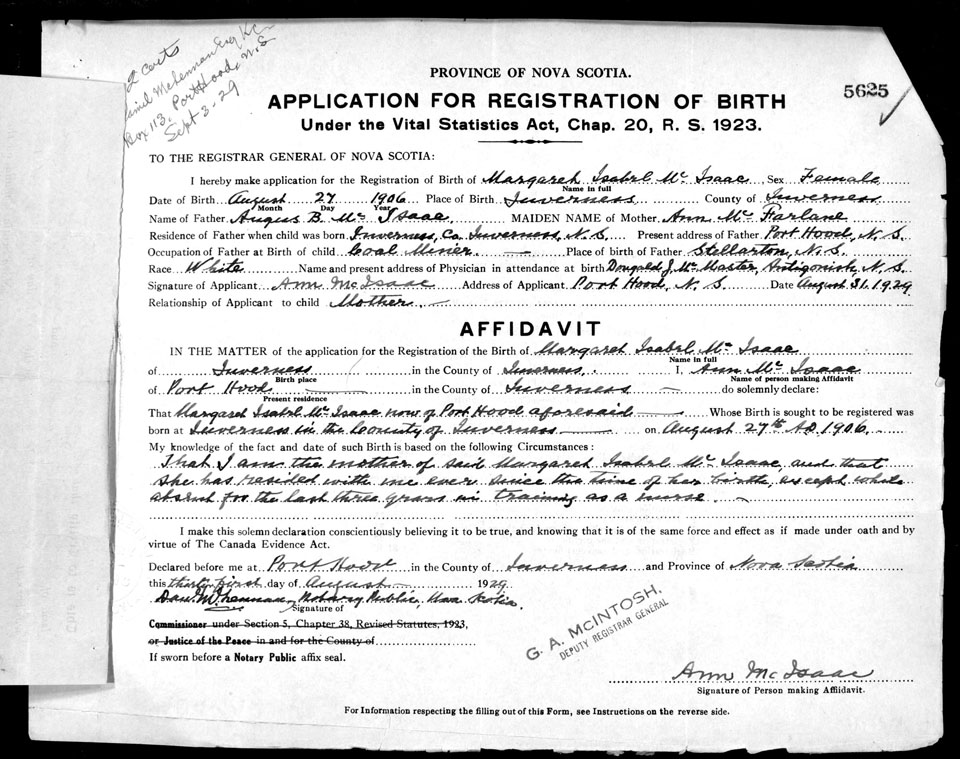 2 certs
McLennan Esq KC
Box 113, Port Hood, N.S
Sept 3. 29
PROVINCE OF NOVA SCOTIA.
5625
APPLICATION FOR REGISTRATION OF BIRTH
Under the Vital Statistics Act, Chap. 20, R. S. 1923.
TO THE REGISTRAR GENERAL OF NOVA SCOTIA:
I hereby make application for the Registration of Birth of Margaret Isabel Mc Isaac Sex Female
Name in full
Date of Birth August 27 1906 Place of Birth Inverness County of Inverness
Month Day Year
Name of Father Angus B. Mc Isaac MAIDEN NAME of Mother Ann Mc Farlane
Residence of Father when child was born Inverness, Co. Inverness, N. S. Present address of Father Port Hood, N. S.
Occupation of Father at Birth of child Coal Miner. Place of birth of Father Stellarton, N. S.
Race White Name and present address of Physician in attendance at birth Dougald J. Mc Master, Antigonish, N. S.
Signature of Applicant Ann McIsaac Address of Applicant Port Hood, N. S. Date August 31, 1929
Relationship of Applicant to child Mother.
AFFIDAVIT
IN THE MATTER of the application for the Registration of the Birth of Margaret Isabel Mc Isaac
Name in full
of Inverness in the County of Inverness. I, Ann Mc Isaac
Birth place Name of person making Affidavit
of Port Hood in the County of Inverness do solemnly declare:
Present residence
That Margaret Isabel Mc Isaac now of Port Hood aforesaid Whose Birth is sought to be registered was
born at Inverness in the County of Inverness on August 27th A.D. 1906.
My knowledge of the fact and date of such Birth is based on the following Circumstances:
That I am the mother of said Margaret Isabel Mc Isaac, and that
she has resided with me ever since the time of her birth, except while
absent for the last three years in training as a nurse.
I make this solemn declaration conscientiously believing it to be true, and knowing that it is of the same force and effect as if made under oath and by
virtue of The Canada Evidence Act.
Declared before me at Port Hood in the County of Inverness and Province of Nova Scotia
this thirty first day of August 1929
Dan. McLennan, Notary Public, Nova Scotia.
Signature of
Commissioner under Section 5, Chapter 38, Revised Statutes, 1923,
or Justice of the Peace in and for the County of
If sworn before a Notary Public affix seal.
G. A. McINTOSH,
DEPUTY REGISTRAR GENERAL
Ann McIsaac
Signature of Person making Affidavit.
For Information respecting the filling out of this Form, see Instructions on the reverse side.